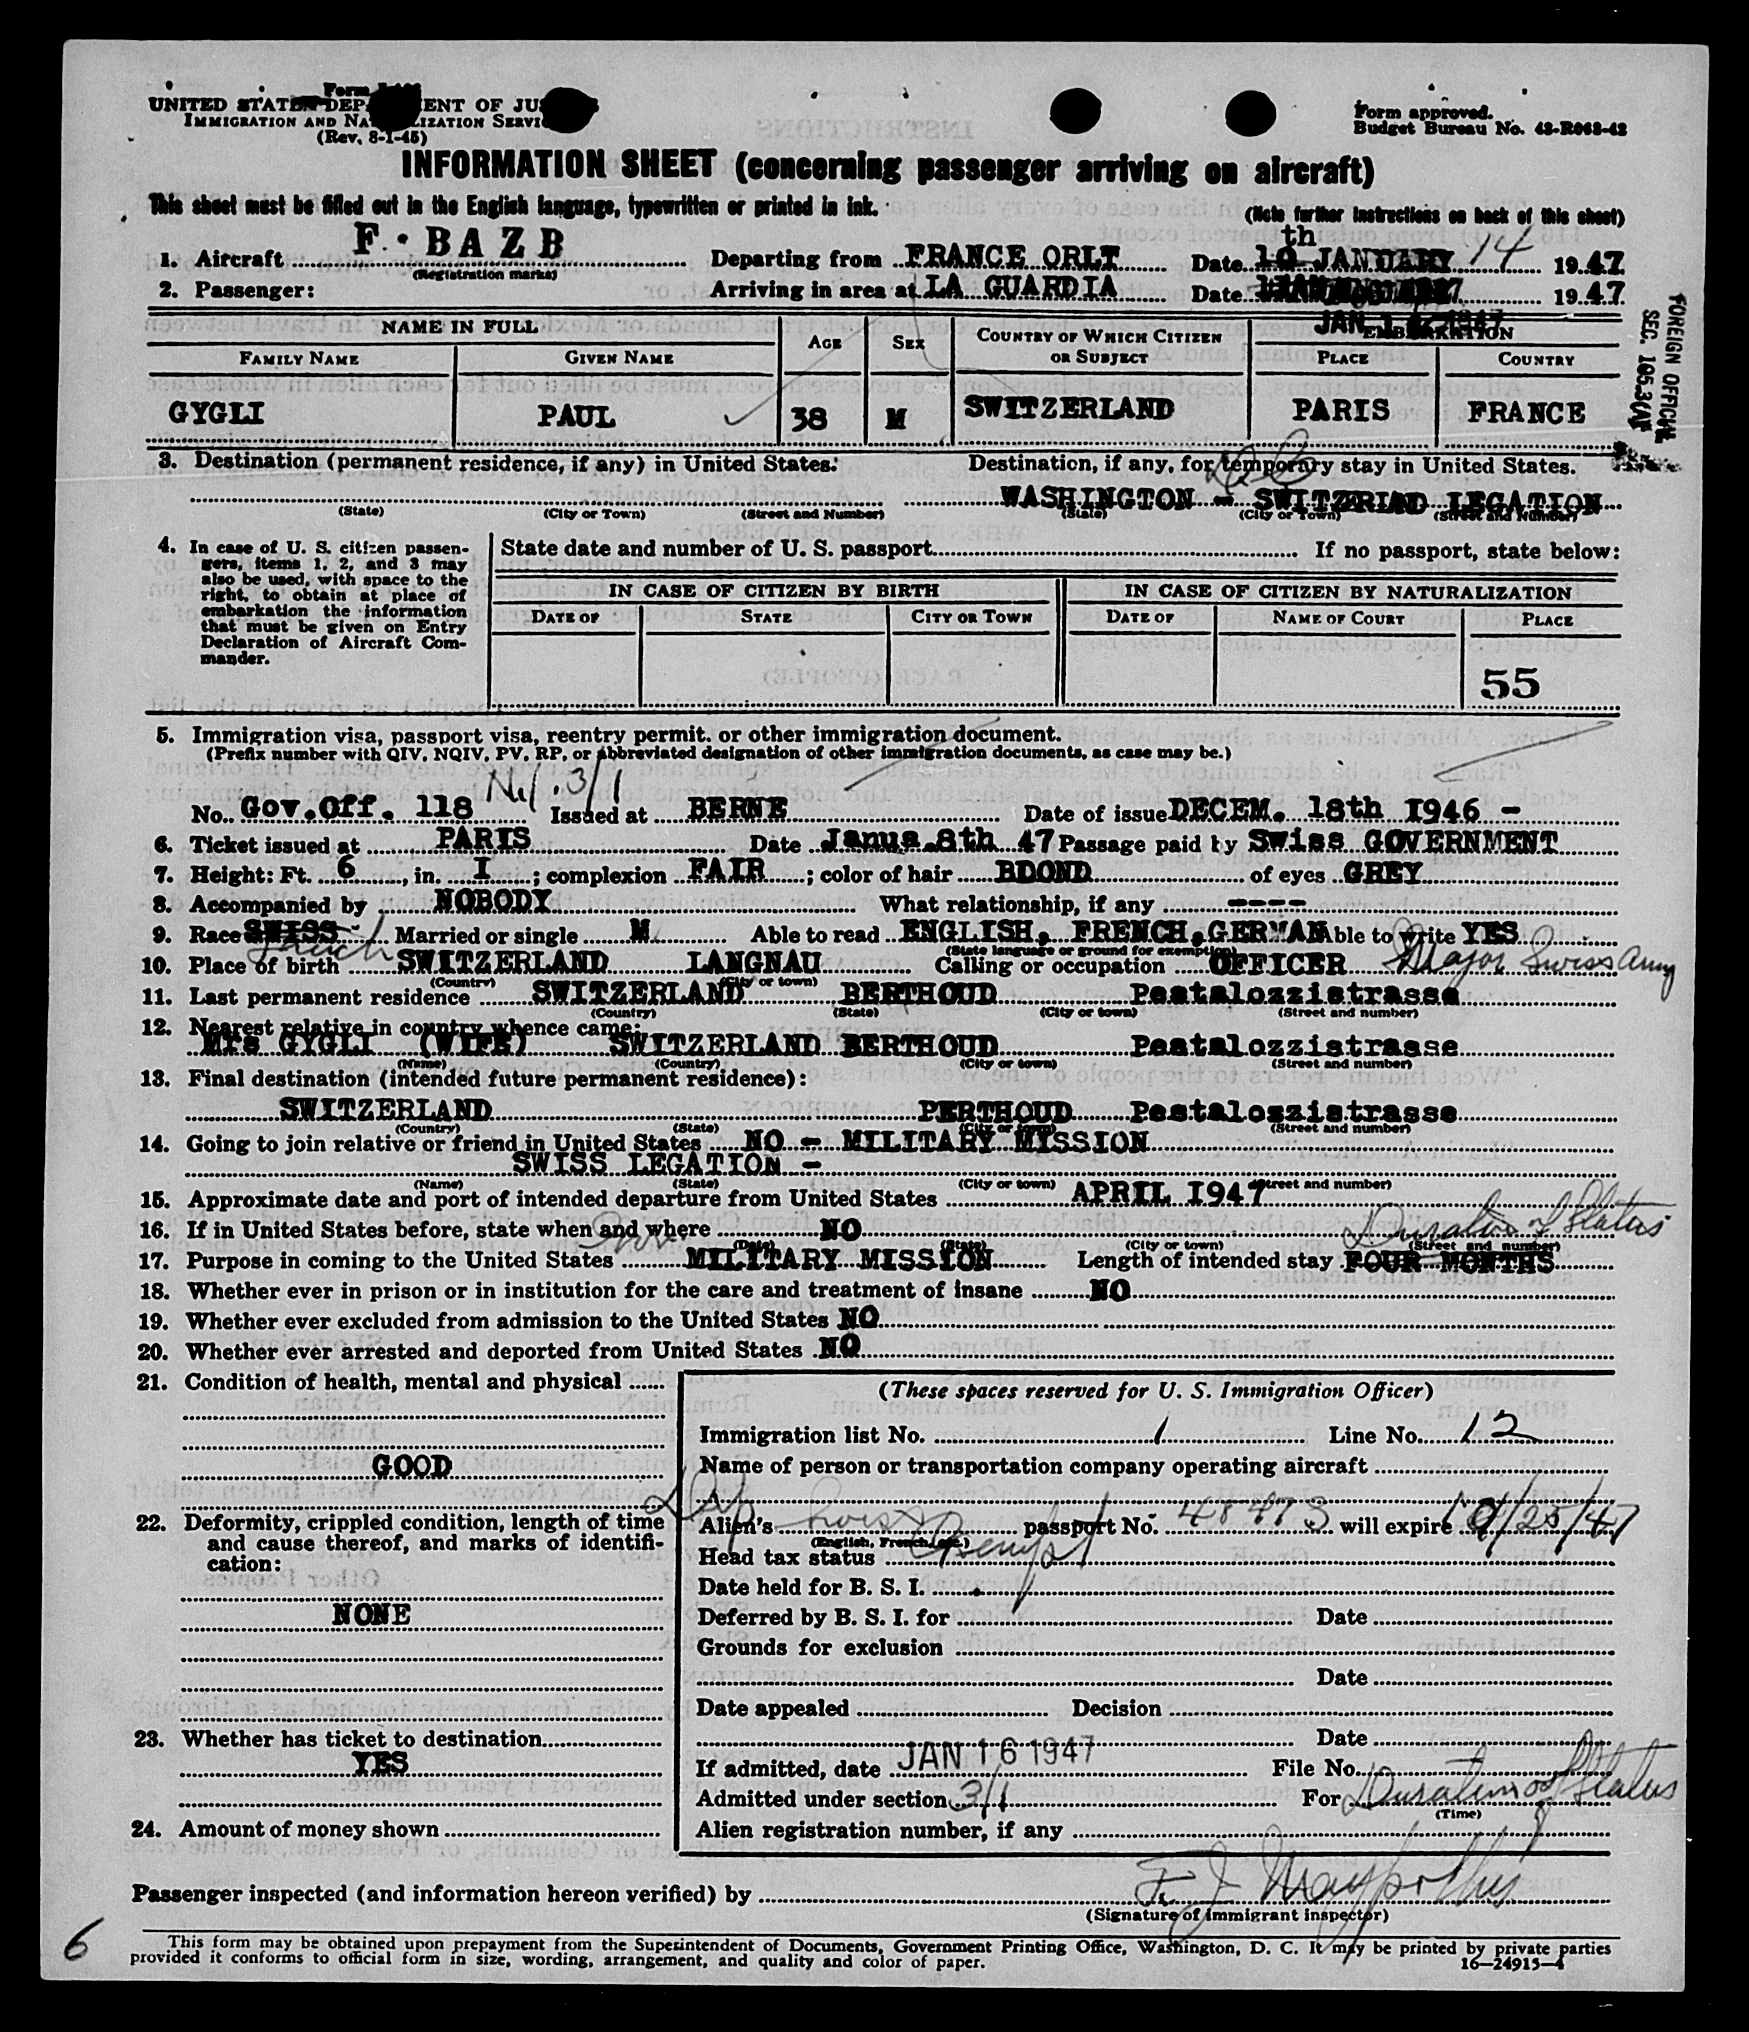 Form
UNITED STATES DEP ENT OF JUS
IMMIGRATION AND NA LIZATION SERVI
(Rev. 8-1-45)
Form approved.
Budget Bureau No. 43-R063-42
INFORMATION SHEET (concerning passenger arriving on aircraft)
This sheet must be filled out in the English language, typewritten or printed in ink.
(Note further instructions on back of this sheet)
1. Aircraft F. BAZB Departing from FRANCE ORLY Date 10th JANUARY 14 1947
(Registration marks)
2. Passenger: Arriving in area at LA GUARDIA Date 1947
JAN 1 1947
NAME IN FULL AGE SEX COUNTRY OF WHICH CITIZEN OR SUBJECT EMBARKATION
FAMILY NAME GIVEN NAME PLACE COUNTRY
GYGLI PAUL 38 M SWITZERLAND PARIS FRANCE
FOREIGN OFFICIAL
SEC. 105.3(A)
3. Destination (permanent residence, if any) in United States: Destination, if any, for temporary stay in United States.
D.C.
WASHINGTON - SWITZERLAD LEGATION
(State) (City or Town) (Street and Number) (State) (City or Town) (Street and Number)
4. In case of U. S. citizen passengers, items 1, 2, and 3 may also be used, with space to the right, to obtain at place of embarkation the information that must be given on Entry Declaration of Aircraft Commander.
State date and number of U. S. passport If no passport, state below:
IN CASE OF CITIZEN BY BIRTH IN CASE OF CITIZEN BY NATURALIZATION
DATE OF STATE CITY OR TOWN DATE OF NAME OF COURT PLACE
55
5. Immigration visa, passport visa, reentry permit, or other immigration document.
(Prefix number with QIV, NQIV, PV, RP, or abbreviated designation of other immigration documents, as case may be.)
3/1
No. Gov.Off. 118 Issued at BERNE Date of issue DECEM. 18th 1946 -
6. Ticket issued at PARIS Date Janua.8th 47 Passage paid by Swiss GOVERNMENT
7. Height: Ft. 6, in. I; complexion FAIR; color of hair BDOND of eyes GREY
8. Accompanied by NOBODY What relationship, if any ----
9. Race SWISS French Married or single M Able to read ENGLISH, FRENCH, GERMAN Able to write YES
(State language or ground for exemption)
10. Place of birth SWITZERLAND LANGNAU Calling or occupation OFFICER Major Swiss Army
(Country) (City or town)
11. Last permanent residence SWITZERLAND BERTHOUD Pestalozzistrasse
(Country) (State) (City or town) (Street and number)
12. Nearest relative in country whence came:
Mrs GYGLI (WIFE) SWITZERLAND BERTHOUD Pestalozzistrasse
(Name) (Country) (City or town) (Street and number)
13. Final destination (intended future permanent residence):
SWITZERLAND PERTHOUD Pestalozzistrasse
(Country) (State) (City or town) (Street and number)
14. Going to join relative or friend in United States NO - MILITARY MISSION
SWISS LEGATION -
(Name) (State) (City or town) (Street and number)
15. Approximate date and port of intended departure from United States APRIL 1947
16. If in United States before, state when and where NO
Duration of Status
(Date) (State) (City or town) (Street and number)
17. Purpose in coming to the United States MILITARY MISSION Length of intended stay FOUR MONTHS
18. Whether ever in prison or in institution for the care and treatment of insane NO
19. Whether ever excluded from admission to the United States NO
20. Whether ever arrested and deported from United States NO
21. Condition of health, mental and physical
GOOD
22. Deformity, crippled condition, length of time and cause thereof, and marks of identification:
NONE
23. Whether has ticket to destination
YES
24. Amount of money shown
(These spaces reserved for U. S. Immigration Officer)
Immigration list No. 1 Line No. 12
Name of person or transportation company operating aircraft
Dip
Alien's Swiss passport No. 48473 will expire 10/25/47
(English, French, etc.)
Head tax status Exempt
Date held for B. S. I.
Deferred by B. S. I. for Date
Grounds for exclusion
Date
Date appealed Decision
Date
If admitted, date JAN 16 1947 File No.
Admitted under section 3/1 For Duration of Status
(Time)
Alien registration number, if any
Passenger inspected (and information hereon verified) by
(Signature of immigrant inspector)
6
This form may be obtained upon prepayment from the Superintendent of Documents, Government Printing Office, Washington, D. C. It may be printed by private parties
provided it conforms to official form in size, wording, arrangement, and quality and color of paper.
16—24915-4